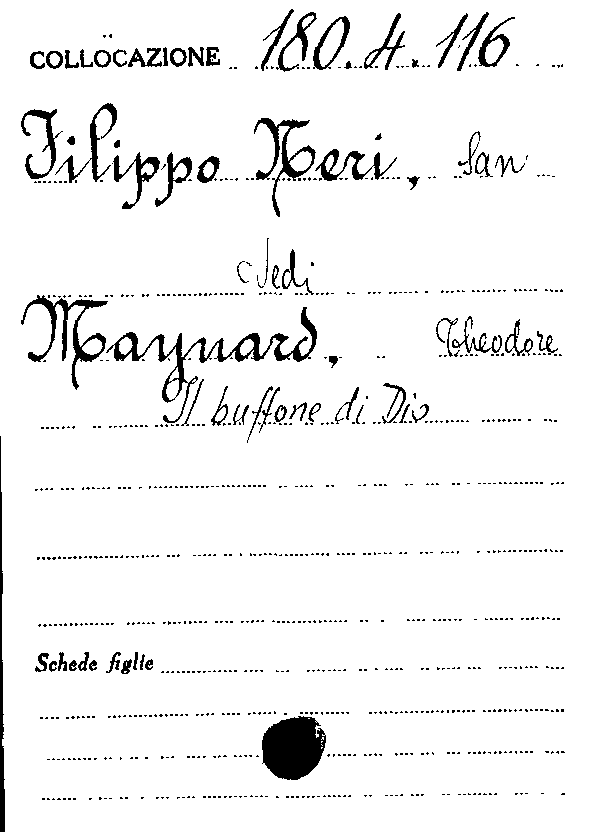 COLLOCAZIONE 180.4.116
Filippo Neri, San
Vedi
Maynard, Theodore
Il buffone di Dio
Schede figlie